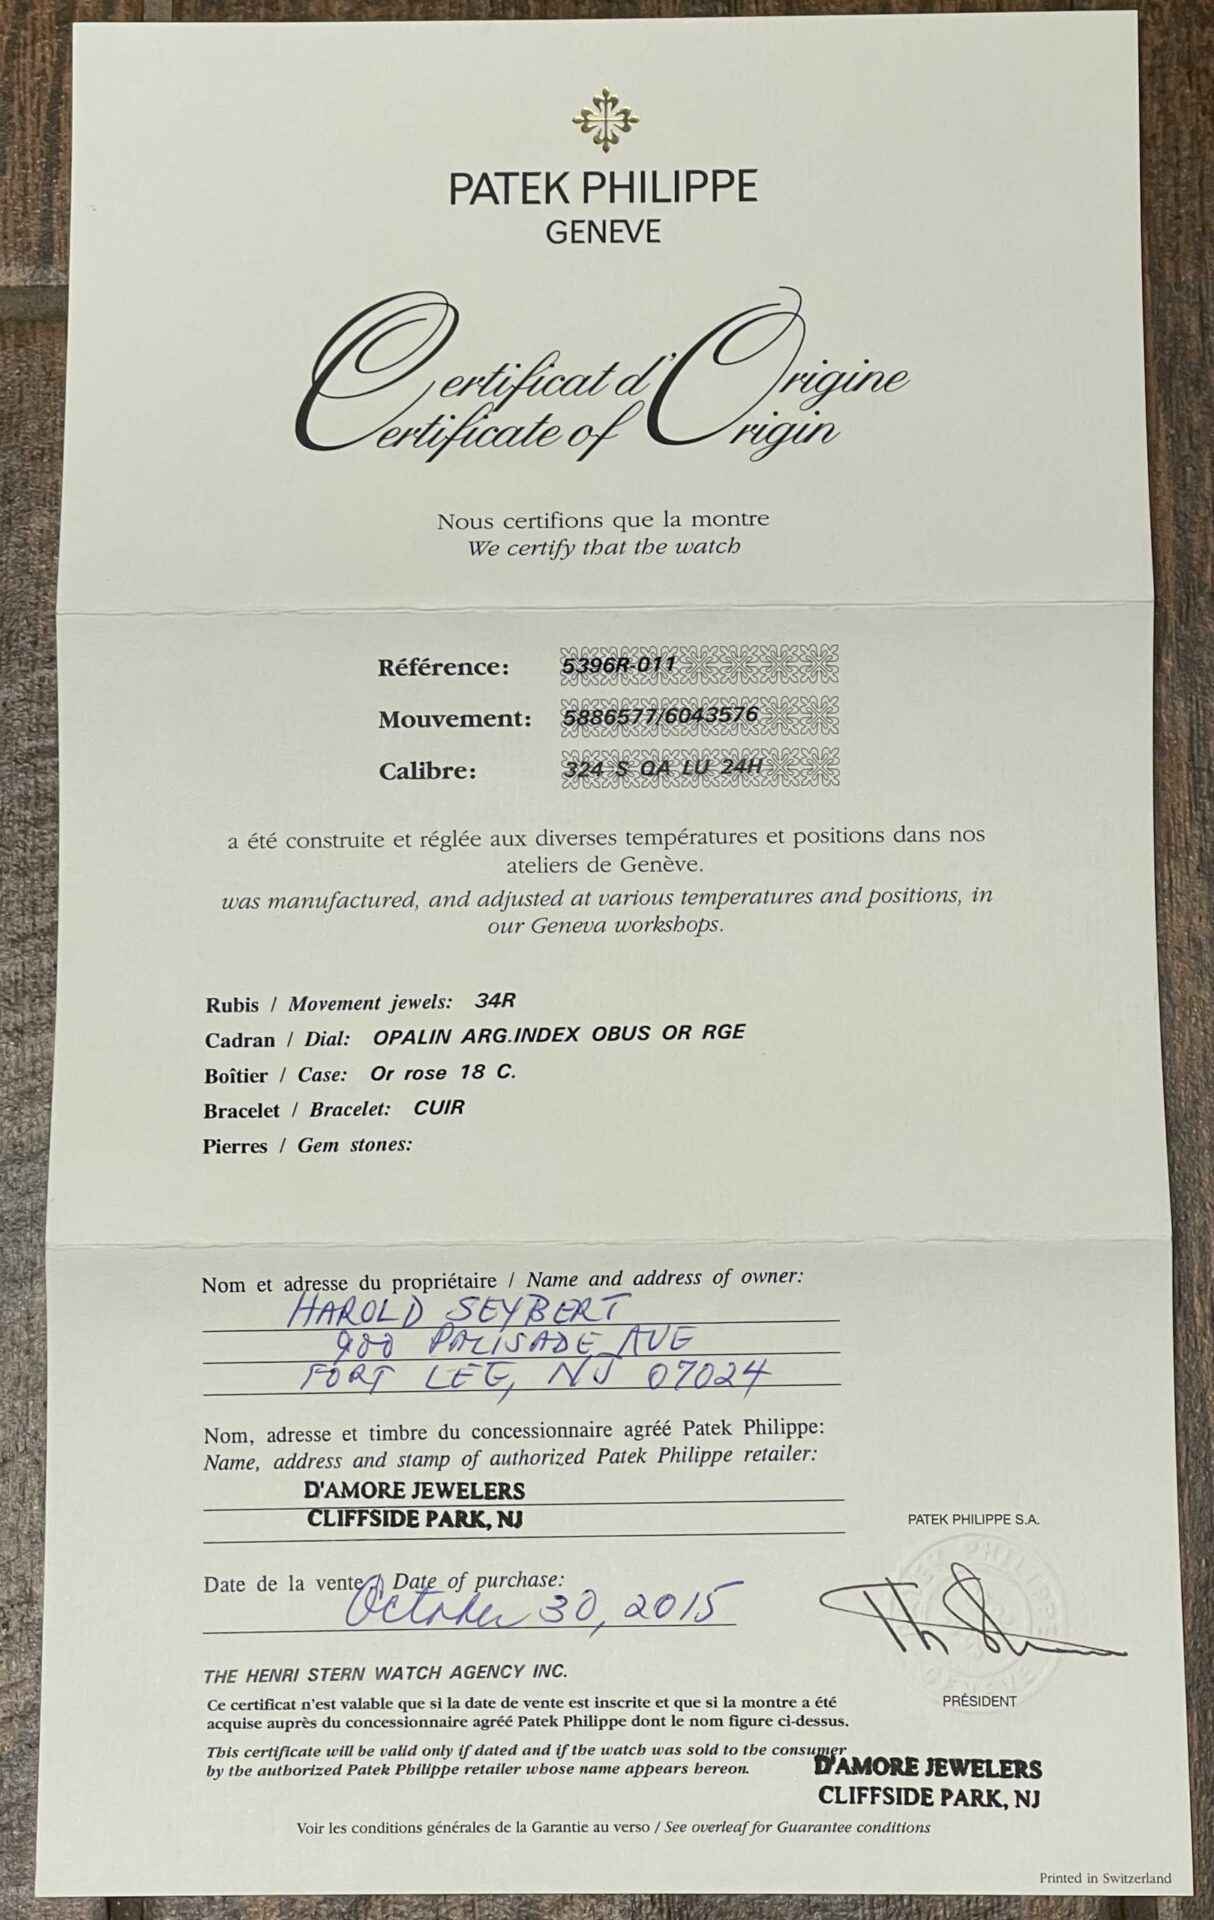 PATEK PHILIPPE
GENEVE
Certificat d'Origine
Certificate of Origin
Nous certifions que la montre
We certify that the watch
Référence: 5396R-011
Mouvement: 5886577/6043576
Calibre: 324 S QA LU 24H
a été construite et réglée aux diverses températures et positions dans nos
ateliers de Genève.
was manufactured, and adjusted at various temperatures and positions, in
our Geneva workshops.
Rubis / Movement jewels: 34R
Cadran / Dial: OPALIN ARG.INDEX OBUS OR RGE
Boîtier / Case: Or rose 18 C.
Bracelet / Bracelet: CUIR
Pierres / Gem stones:
Nom et adresse du propriétaire / Name and address of owner:
HAROLD SEYBERT
900 PALISADE AVE
FORT LEE, NJ 07024
Nom, adresse et timbre du concessionnaire agréé Patek Philippe:
Name, address and stamp of authorized Patek Philippe retailer:
D'AMORE JEWELERS
CLIFFSIDE PARK, NJ
PATEK PHILIPPE S.A.
Date de la vente / Date of purchase:
October 30, 2015
THE HENRI STERN WATCH AGENCY INC.
PRÉSIDENT
Ce certificat n'est valable que si la date de vente est inscrite et que si la montre a été
acquise auprès du concessionnaire agréé Patek Philippe dont le nom figure ci-dessus.
This certificate will be valid only if dated and if the watch was sold to the consumer
by the authorized Patek Philippe retailer whose name appears hereon.
D'AMORE JEWELERS
CLIFFSIDE PARK, NJ
Voir les conditions générales de la Garantie au verso / See overleaf for Guarantee conditions
Printed in Switzerland